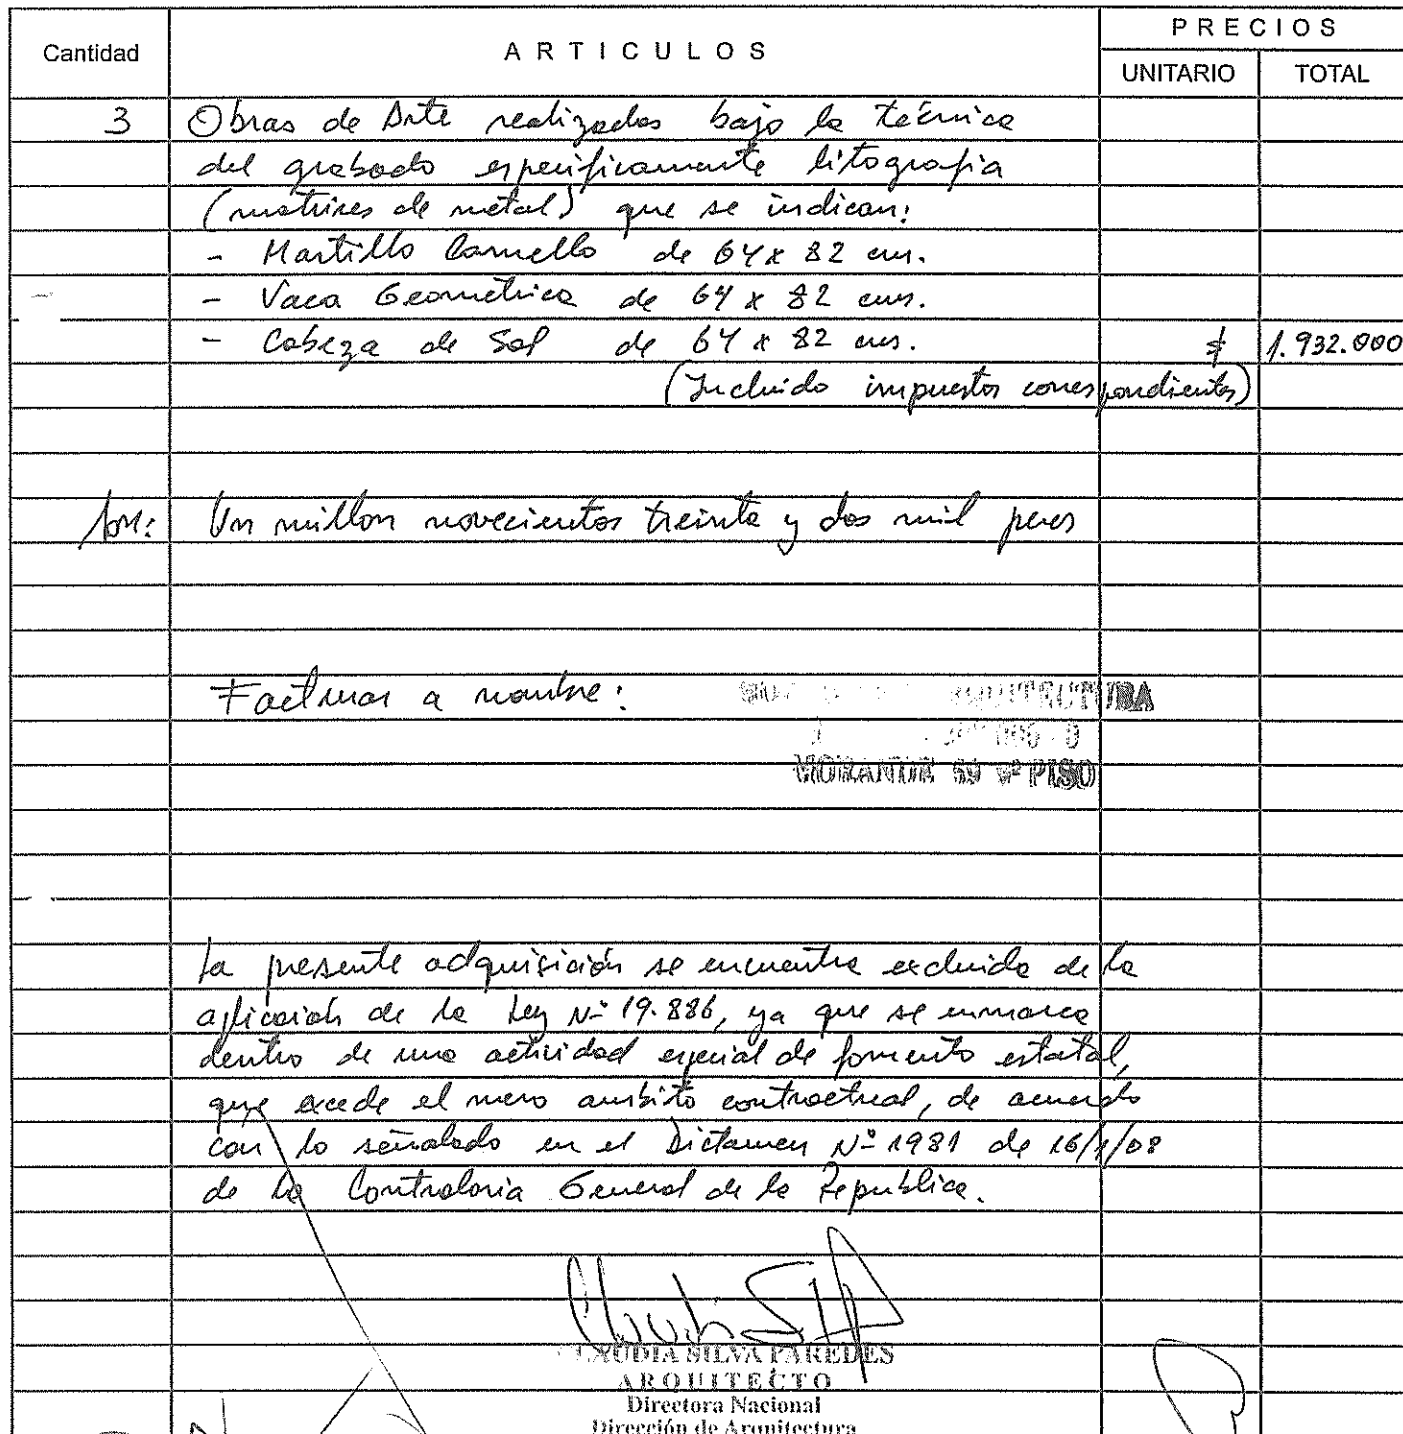 Cantidad
ARTICULOS
PRECIOS
UNITARIO TOTAL
3 Obras de Arte realizadas bajo la técnica
del grabado especificamente litografia
(matrices de metal) que se indican:
- Martillo Camello de 64 x 82 cms.
- Vaca Geometrica de 64 x 82 cms.
- Cabeza de Sol de 64 x 82 cms. $ 1.932.000
(Incluido impuestos correspondientes)
Son: Un millon novecientos treinta y dos mil pesos
Facturar a nombre: ARQUITECTURA
MORANDE 59 PISO
La presente adquisición se encuentra excluida de la
aplicación de la Ley Nº 19.886, ya que se enmarca
dentro de una actividad especial de fomento estatal,
que excede el mero ambito contractual, de acuerdo
con lo señalado en el Dictamen Nº 1981 de 16/1/08
de la Contraloria General de la Republica.
CLAUDIA SILVA PAREDES
ARQUITECTO
Directora Nacional
Dirección de Arquitectura